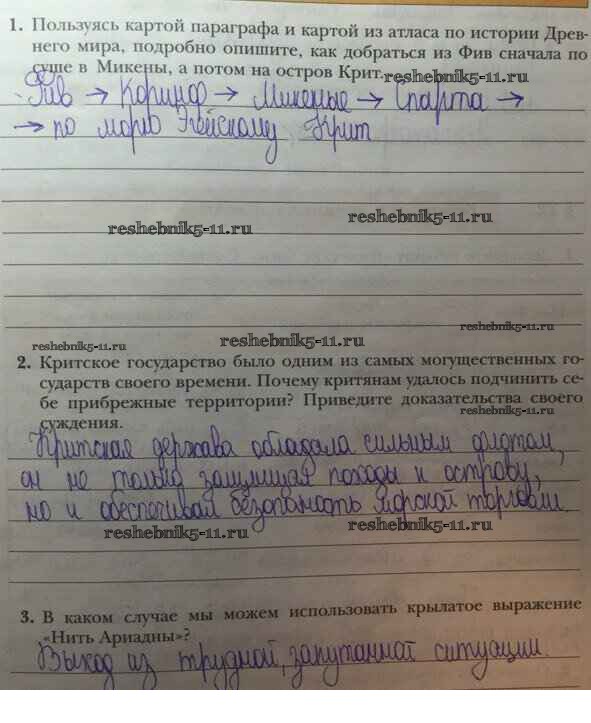 1. Пользуясь картой параграфа и картой из атласа по истории Древ-
него мира, подробно опишите, как добраться из Фив сначала по
суше в Микены, а потом на остров Крит.
reshebnik5-11.ru
Фив → Коринф → Микены → Спарта →
→ по морю Эгейскому Крит
reshebnik5-11.ru
reshebnik5-11.ru
reshebnik5-11.ru
reshebnik5-11.ru
reshebnik5-11.ru
2. Критское государство было одним из самых могущественных го-
сударств своего времени. Почему критянам удалось подчинить се-
бе прибрежные территории? Приведите доказательства своего
суждения.
reshebnik5-11.ru
Критская держава обладала сильным флотом,
он не только защищал походы к острову,
но и обеспечивал безопасность морской торговли.
reshebnik5-11.ru
reshebnik5-11.ru
3. В каком случае мы можем использовать крылатое выражение
«Нить Ариадны»?
Выход из трудной, запутанной ситуации.